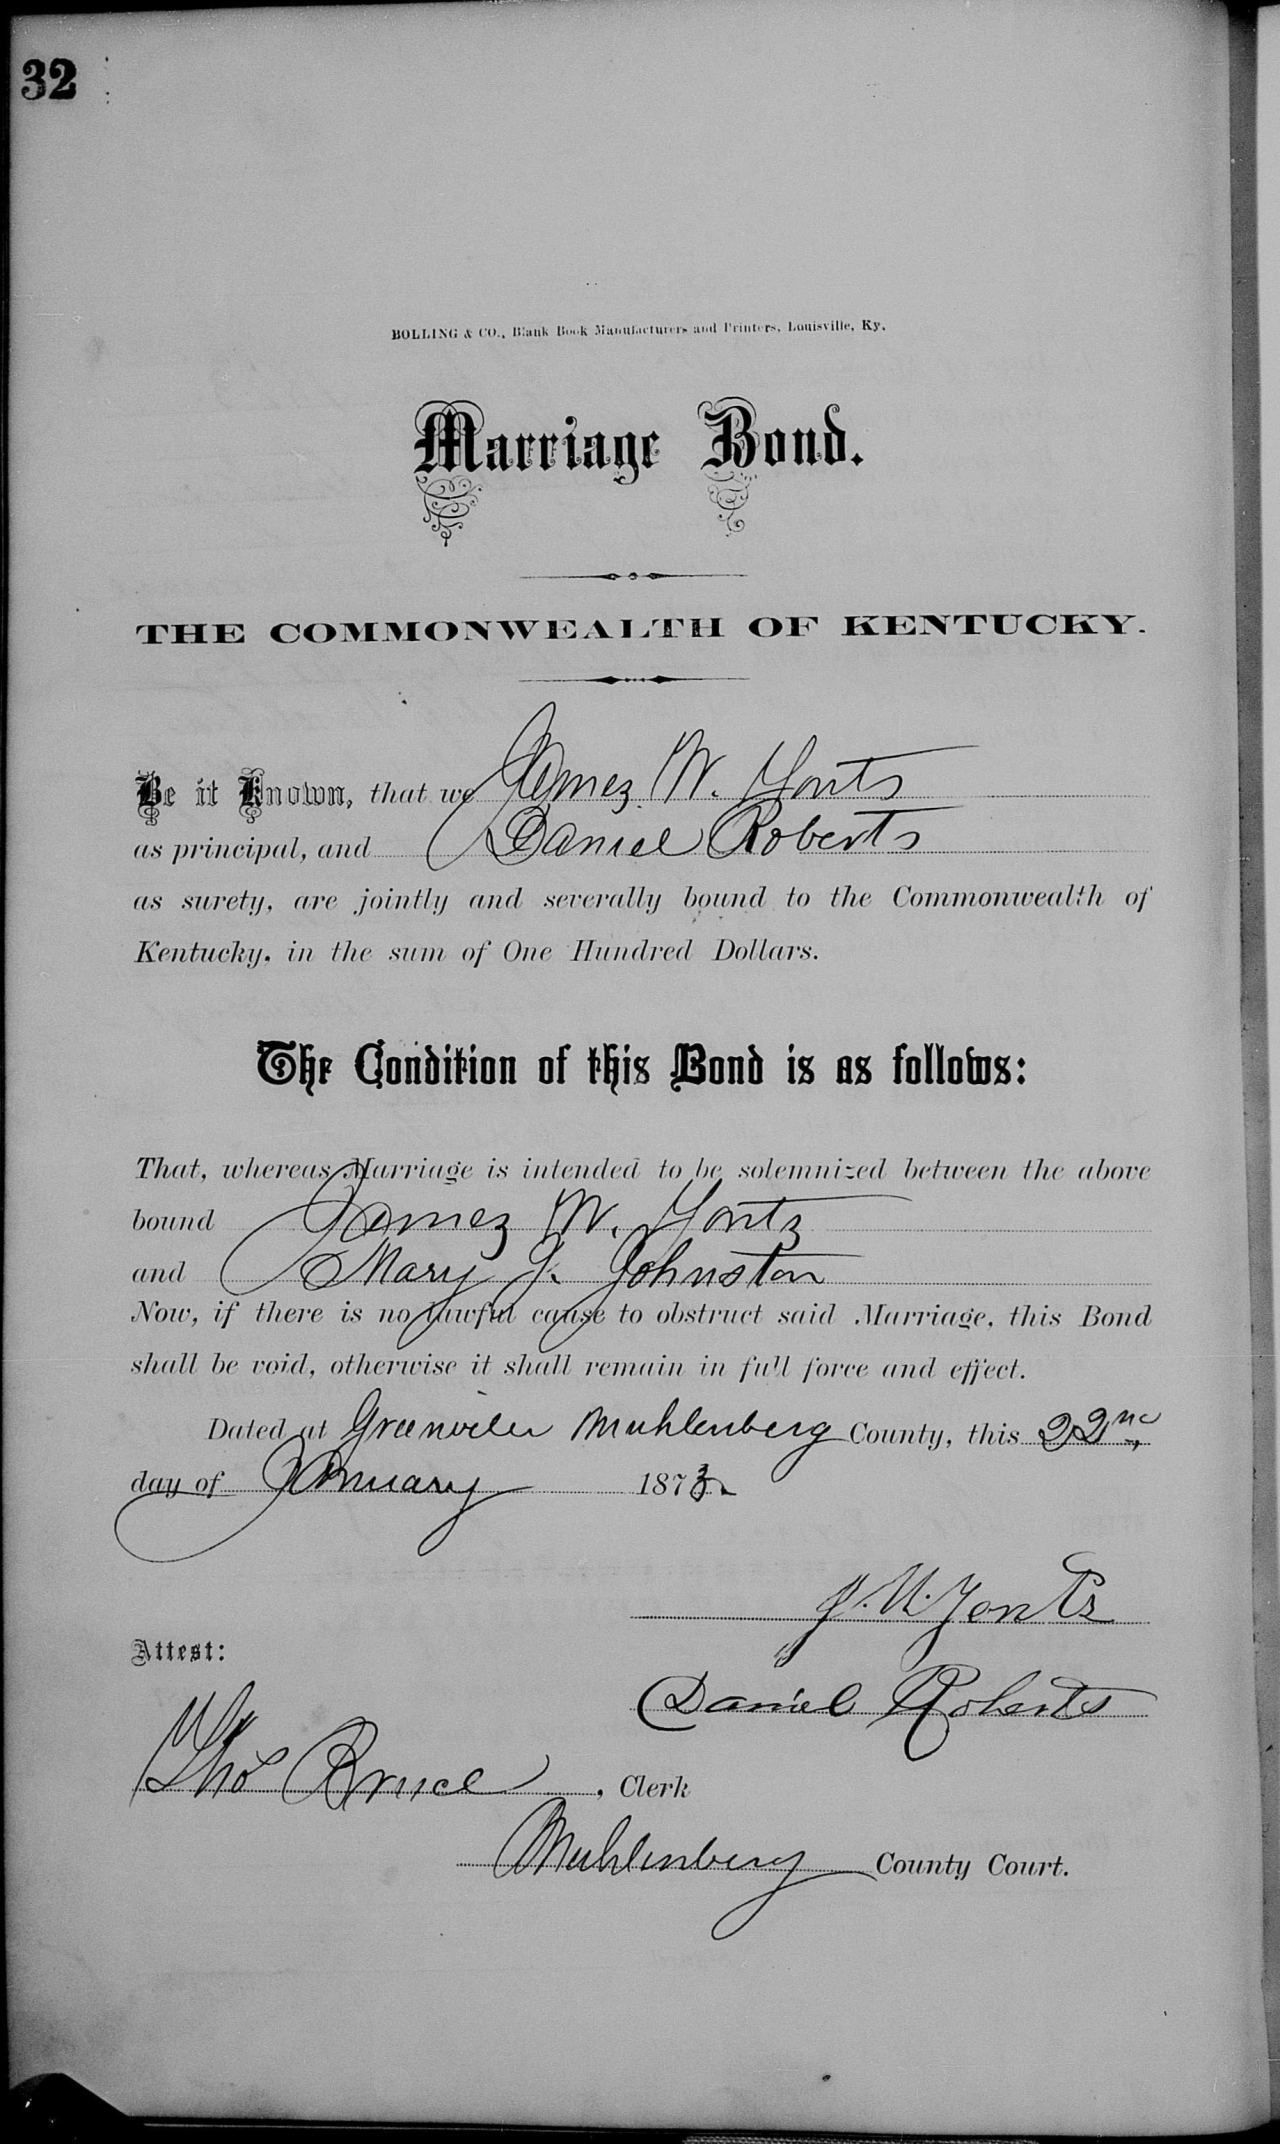 32
BOLLING & CO., Blank Book Manufacturers and Printers, Louisville, Ky.
Marriage Bond.
THE COMMONWEALTH OF KENTUCKY.
Be it Known, that we James W. Yonts
as principal, and Daniel Roberts
as surety, are jointly and severally bound to the Commonwealth of
Kentucky, in the sum of One Hundred Dollars.
The Condition of this Bond is as follows:
That, whereas Marriage is intended to be solemnized between the above
bound James W. Yonts
and Mary J. Johnston
Now, if there is no lawful cause to obstruct said Marriage, this Bond
shall be void, otherwise it shall remain in full force and effect.
Dated at Greenville Muhlenberg County, this 22nd
day of January 1873
J. W. Yonts
Attest:
Daniel Roberts
Tho Bruce, Clerk
Muhlenberg County Court.